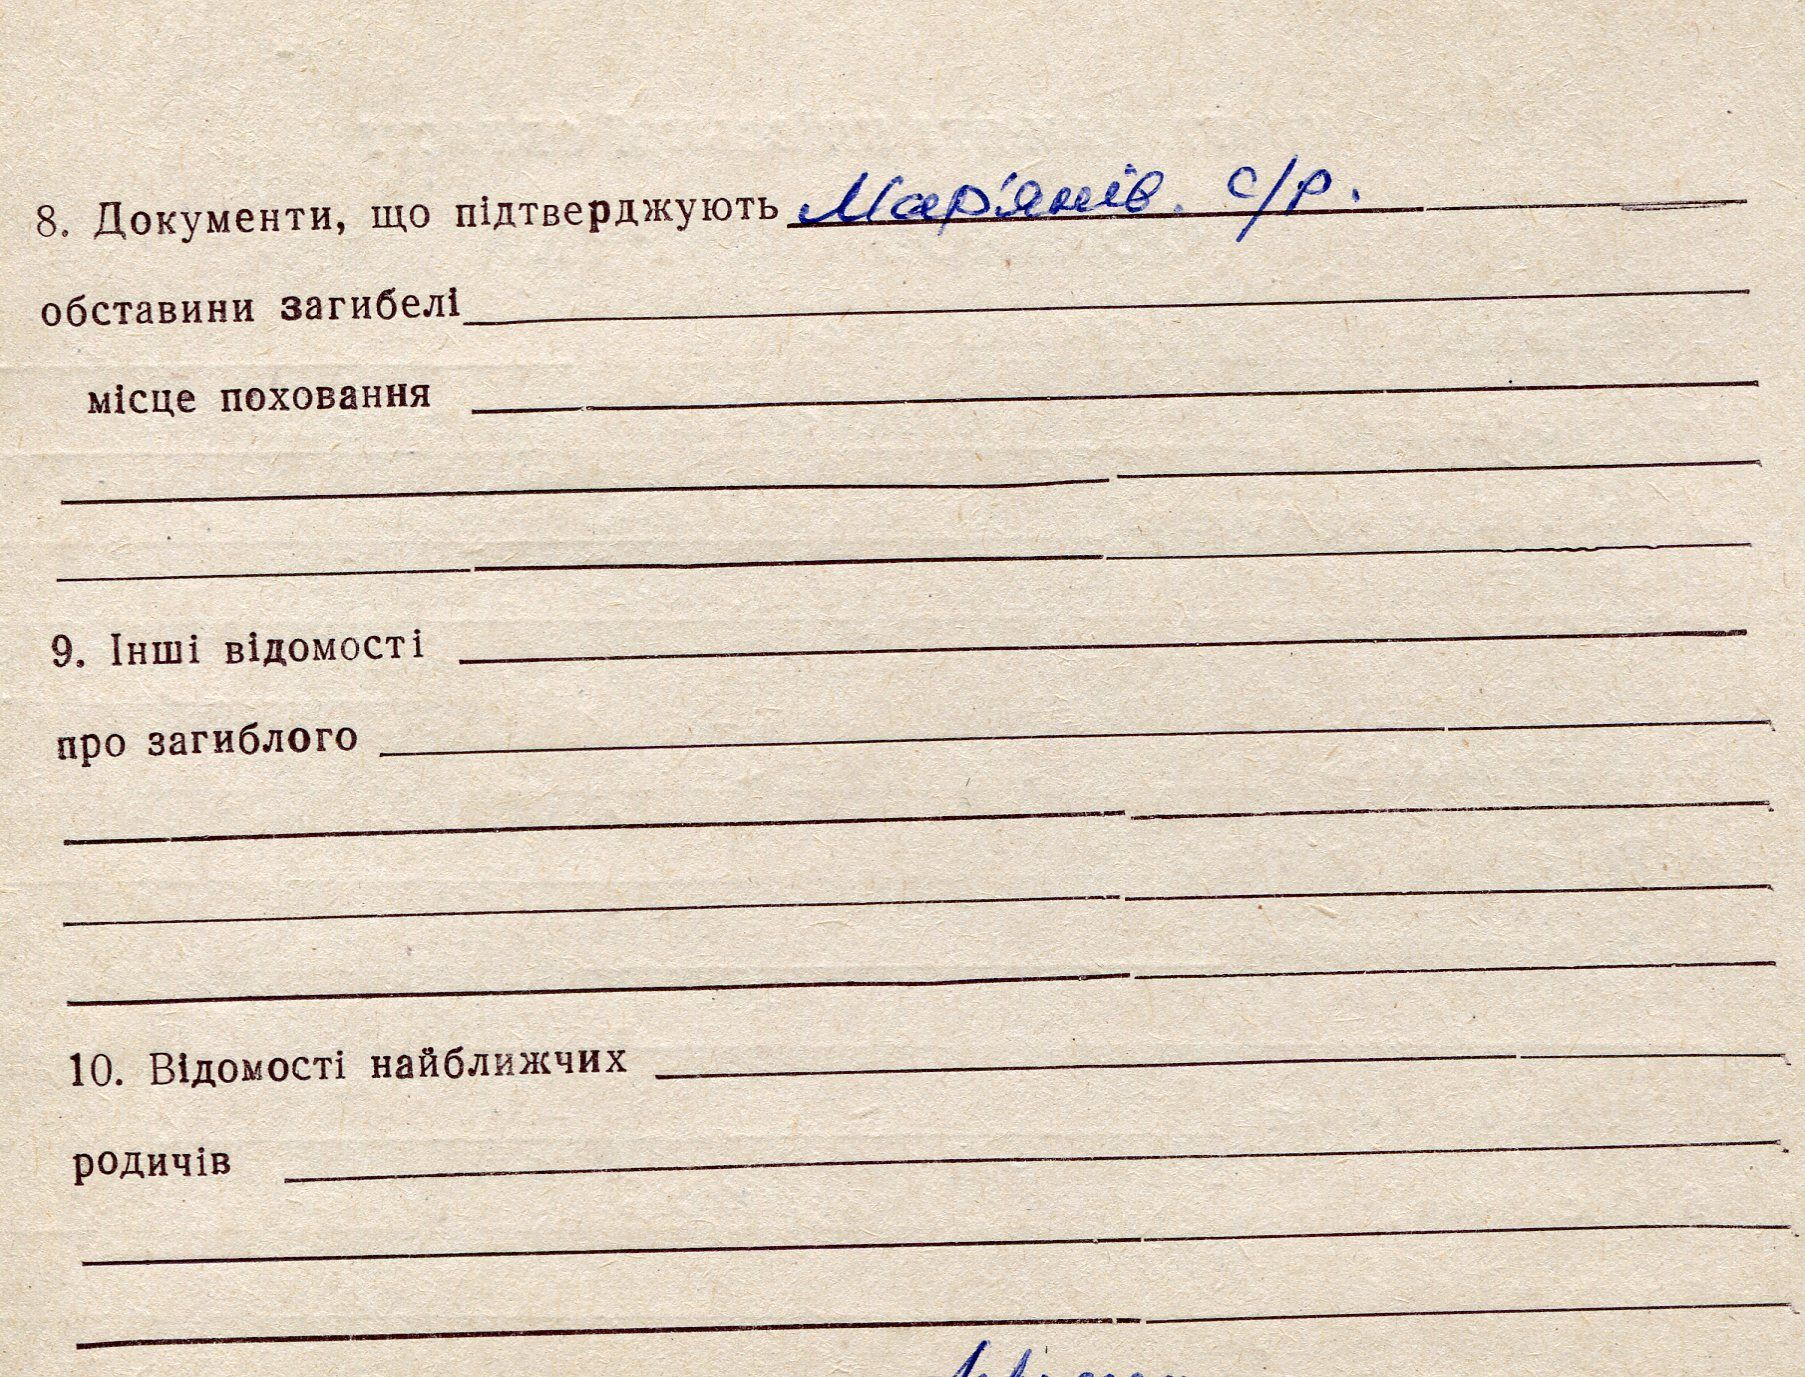 8. Документи, що підтверджують Мар'янів. с/р.
обставини загибелі
місце поховання
9. Інші відомості
про загиблого
10. Відомості найближчих
родичів